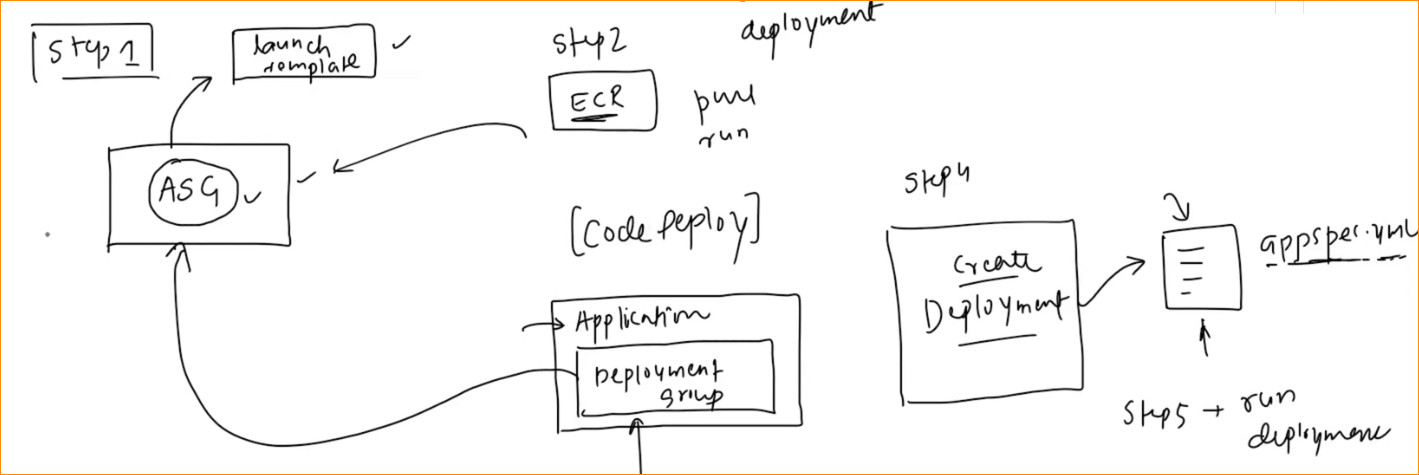 Step 1
launch
template
ASG
Step2
deployment
ECR
pull
run
[Code Deploy]
Application
Deployment
group
Step4
Create
Deployment
appspec.yml
Step5 → run
deployment